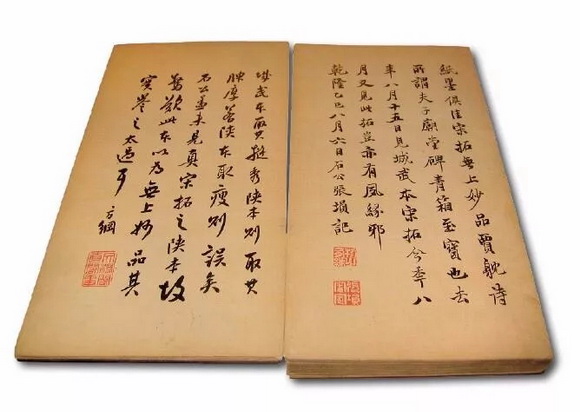 紙墨俱佳宋拓無上妙品賈詩
所謂夫子廟堂碑青箱至寶也去
年八月十五日見城武本宋拓今年八
月又見此拓豈亦有風緣邪
乾隆乙巳八月六日石公張塤記
城武本取其挺秀陝本則取其
腴厚若陝本取瘦則誤矣
石公蓋未見真宋拓之陝本故
驚歎此本以為無上妙品其
實譽之太過耳
方綱